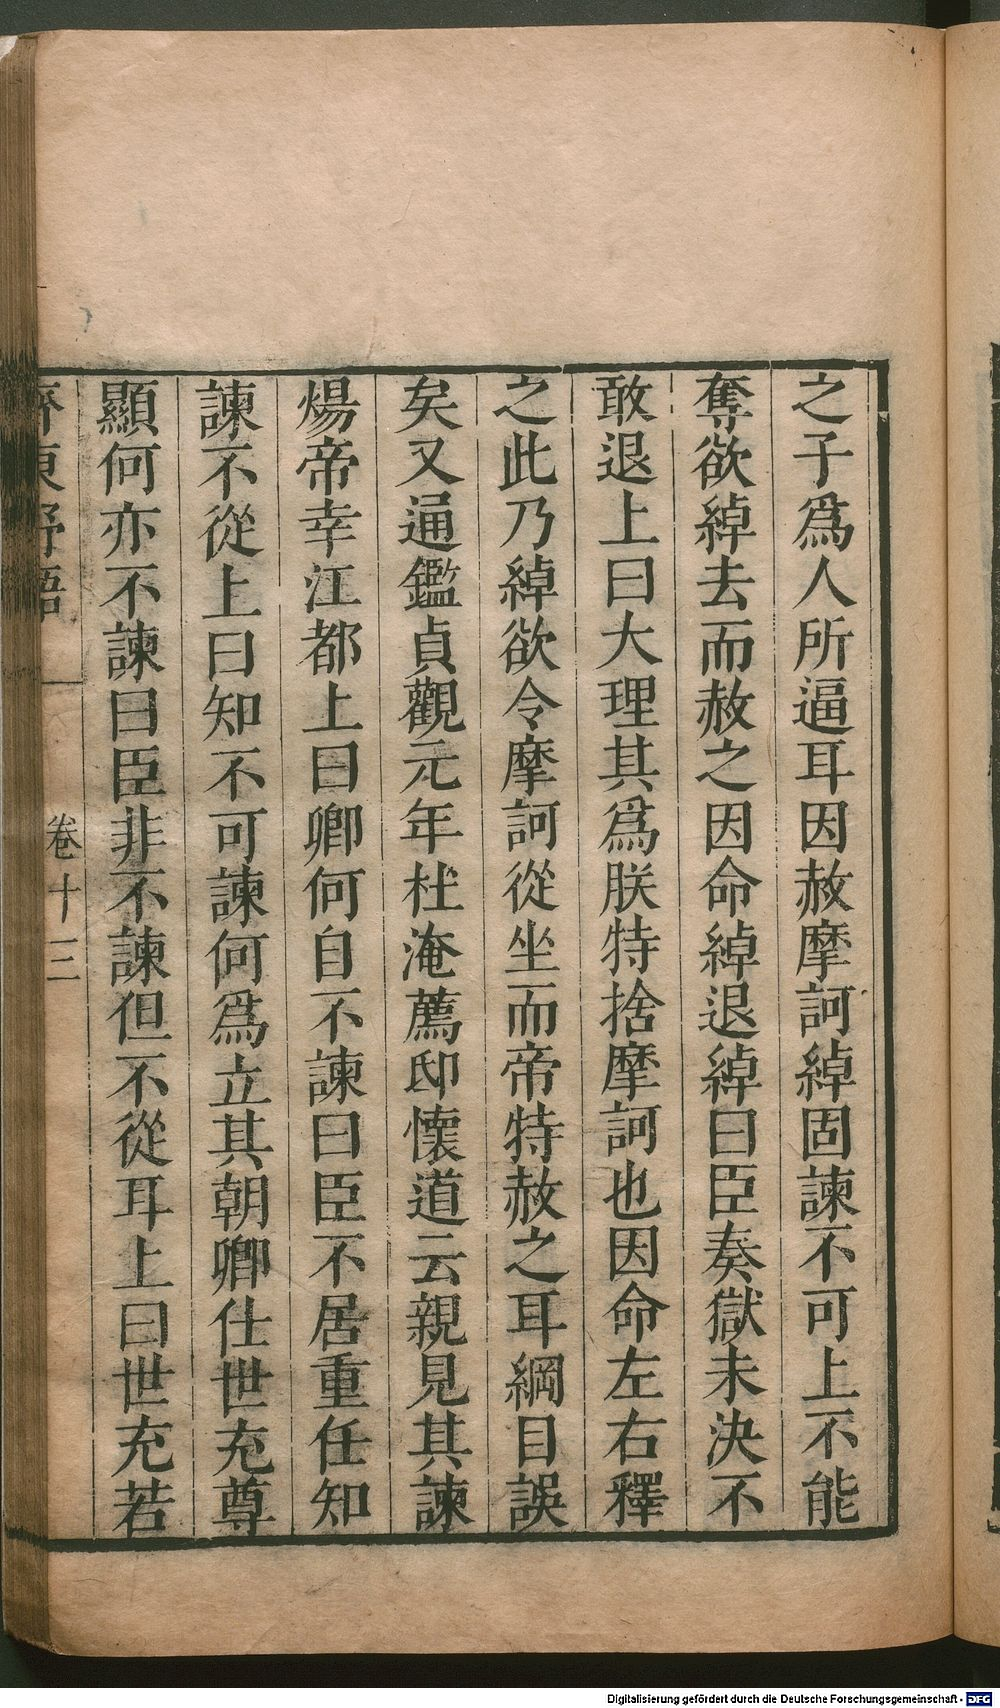 之子爲人所逼耳因赦摩訶綽固諫不可上不能
奪欲綽去而赦之因命綽退綽曰臣奏獄未決不
敢退上曰大理其爲朕特捨摩訶也因命左右釋
之此乃綽欲令摩訶從坐而帝特赦之耳綱目誤
矣又通鑑貞觀元年杜淹薦邸懷道云親見其諫
煬帝幸江都上曰卿何自不諫曰臣不居重任知
諫不從上曰知不可諫何爲立其朝卿仕世充尊
顯何亦不諫曰臣非不諫但不從耳上曰世充若
齊東野語 卷十三
Digitalisierung gefördert durch die Deutsche Forschungsgemeinschaft - DFG